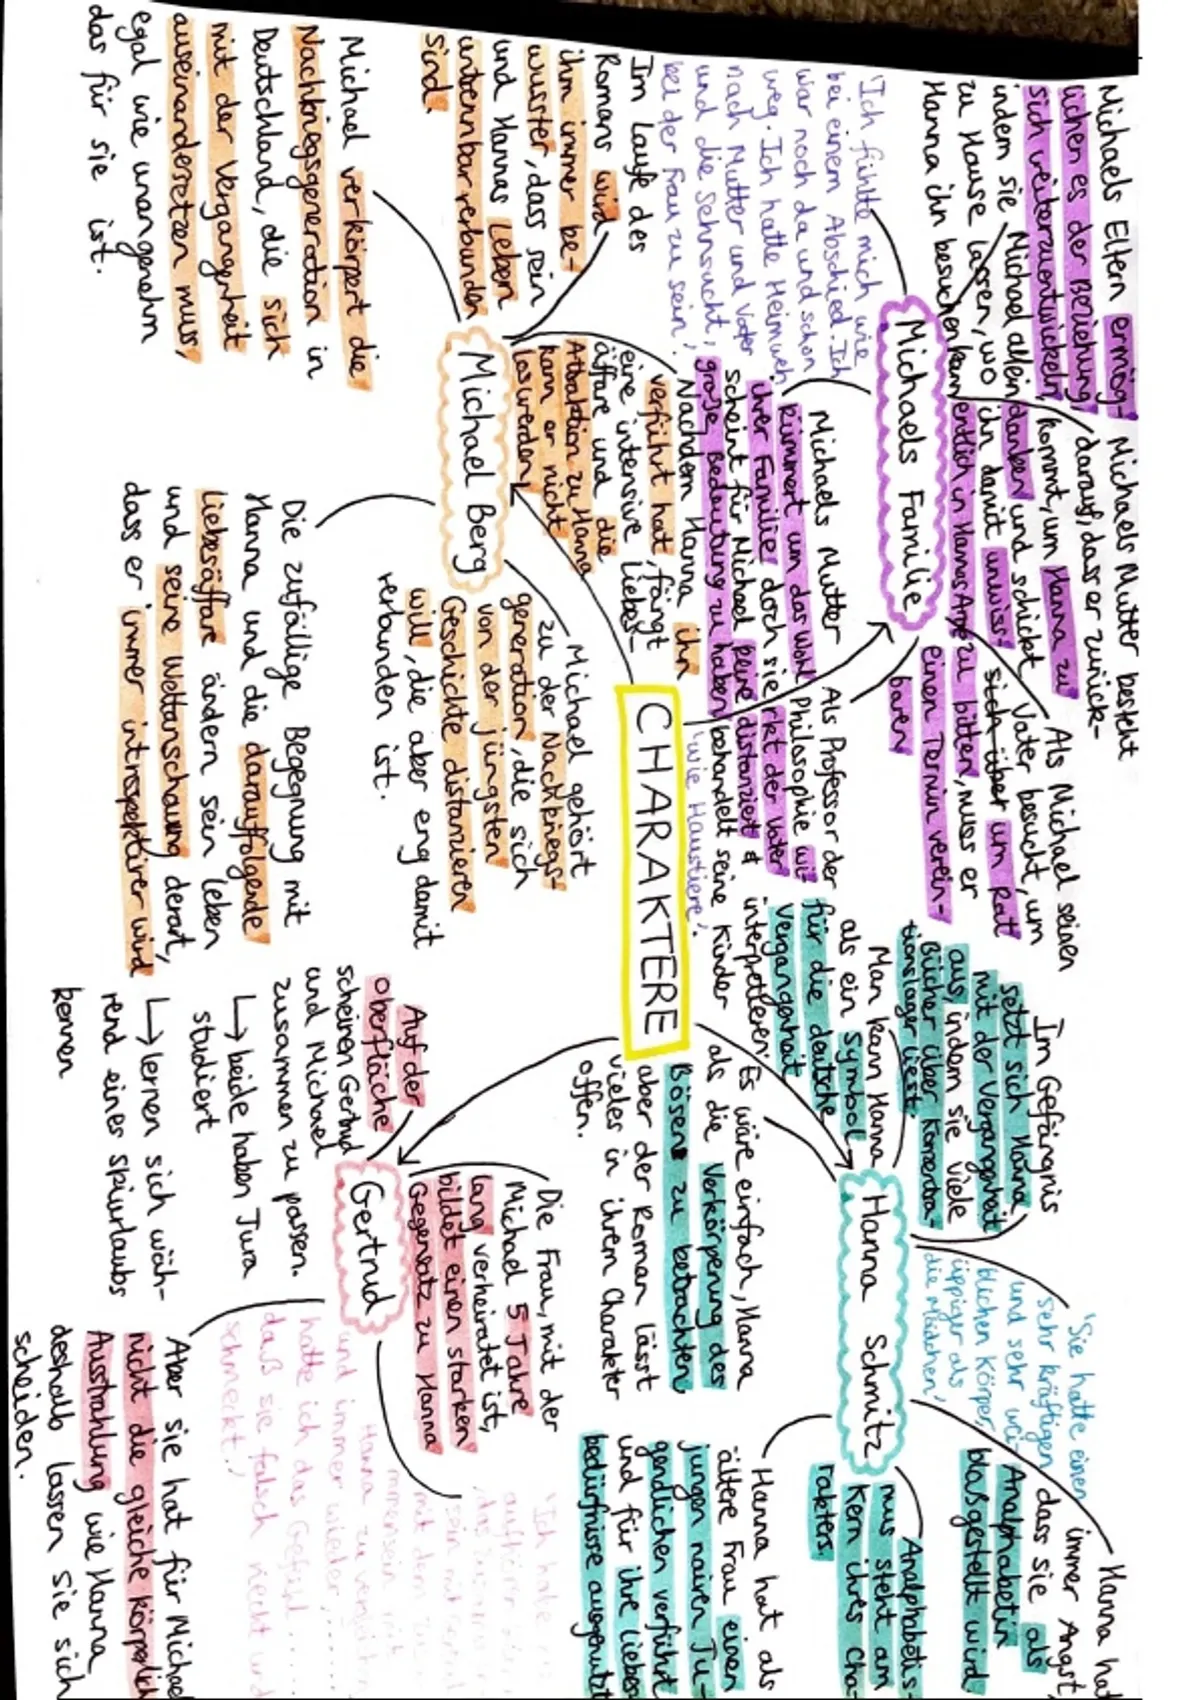 CHARAKTERE
Michaels Familie
Michaels Eltern ermög-
lichen es der Beziehung,
sich weiterzuentwickeln,
indem sie Michael allein
zu Hause lassen, wo
Hanna ihn besuchen kann
Michaels Mutter besteht
darauf, dass er zurück-
kommt, um Hanna zu
danken und schickt
ihn damit unwiss-
entlich in Hannas Arme
Als Michael seinen
Vater besucht, um
sich über um Rat
zu bitten, muss er
einen Termin verein-
baren
'Ich fühlte mich wie
bei einem Abschied. Ich
war noch da und schon
weg. Ich hatte Heimweh
nach Mutter und Vater
und die Sehnsucht,
bei der Frau zu sein.'
Michaels Mutter
kümmert um das Wohl
ihrer Familie, doch sie
scheint für Michael keine
große Bedeutung zu haben
Als Professor der
Philosophie wi-
rkt der Vater
distanziert &
behandelt seine Kinder
'wie Haustiere'.
Michael Berg
Im Laufe des
Romans wird
ihm immer be-
wusster, dass sein
und Hannas Leben
untrennbar verbunden
sind.
Nachdem Hanna ihn
verführt hat, fängt
eine intensive Liebes-
affäre und die
Attraktion zu Hanna
kann er nicht
loswerden
Michael verkörpert die
Nachkriegsgeneration in
Deutschland, die sich
mit der Vergangenheit
auseinandersetzen muss,
egal wie unangenehm
das für sie ist.
Michael gehört
zu der Nachkriegs-
generation, die sich
von der jüngsten
Geschichte distanzieren
will, die aber eng damit
verbunden ist.
Die zufällige Begegnung mit
Hanna und die darauffolgende
Liebesaffäre ändern sein Leben
und seine Weltanschauung derart,
dass er immer introspektiver wird
Hanna Schmitz
Im Gefängnis
setzt sich Hanna
mit der Vergangenheit
aus, indem sie viele
Bücher über Konzentra-
tionslager liest.
Man kann Hanna
als ein Symbol
für die deutsche
Vergangenheit
interpretieren.
Es wäre einfach, Hanna
als die Verkörperung des
Bösens zu betrachten,
aber der Roman lässt
vieles in ihrem Charakter
offen.
'Sie hatte einen
sehr kräftigen
und sehr wei-
blichen Körper,
üppiger als
die Mädchen,'
Hanna hat
immer Angst,
dass sie als
Analphabetin
bloßgestellt wird.
Analphabetis-
mus steht am
Kern ihres Cha-
rakters.
Hanna hat als
ältere Frau einen
jungen naiven Ju-
gendlichen verführt
und für ihre Liebes-
bedürfnisse ausgenutzt
Gertrud
Auf der
Oberfläche
scheinen Gertrud
und Michael
zusammen zu passen.
↳ beide haben Jura
studiert
↳ lernen sich wäh-
rend eines Skiurlaubs
kennen
Die Frau, mit der
Michael 5 Jahre
lang verheiratet ist,
bildet einen starken
Gegensatz zu Hanna
'Ich habe
aufhören
das
sein mit Gertrud
mit dem
mmensein mit
Hanna zu vergleichen
und immer wieder .......
hatte ich das Gefühl .....
daß sie falsch riecht und
schmeckt.'
Aber sie hat für Michael
nicht die gleiche körperlich
Ausstrahlung wie Hanna,
deshalb lassen sie sich
scheiden.